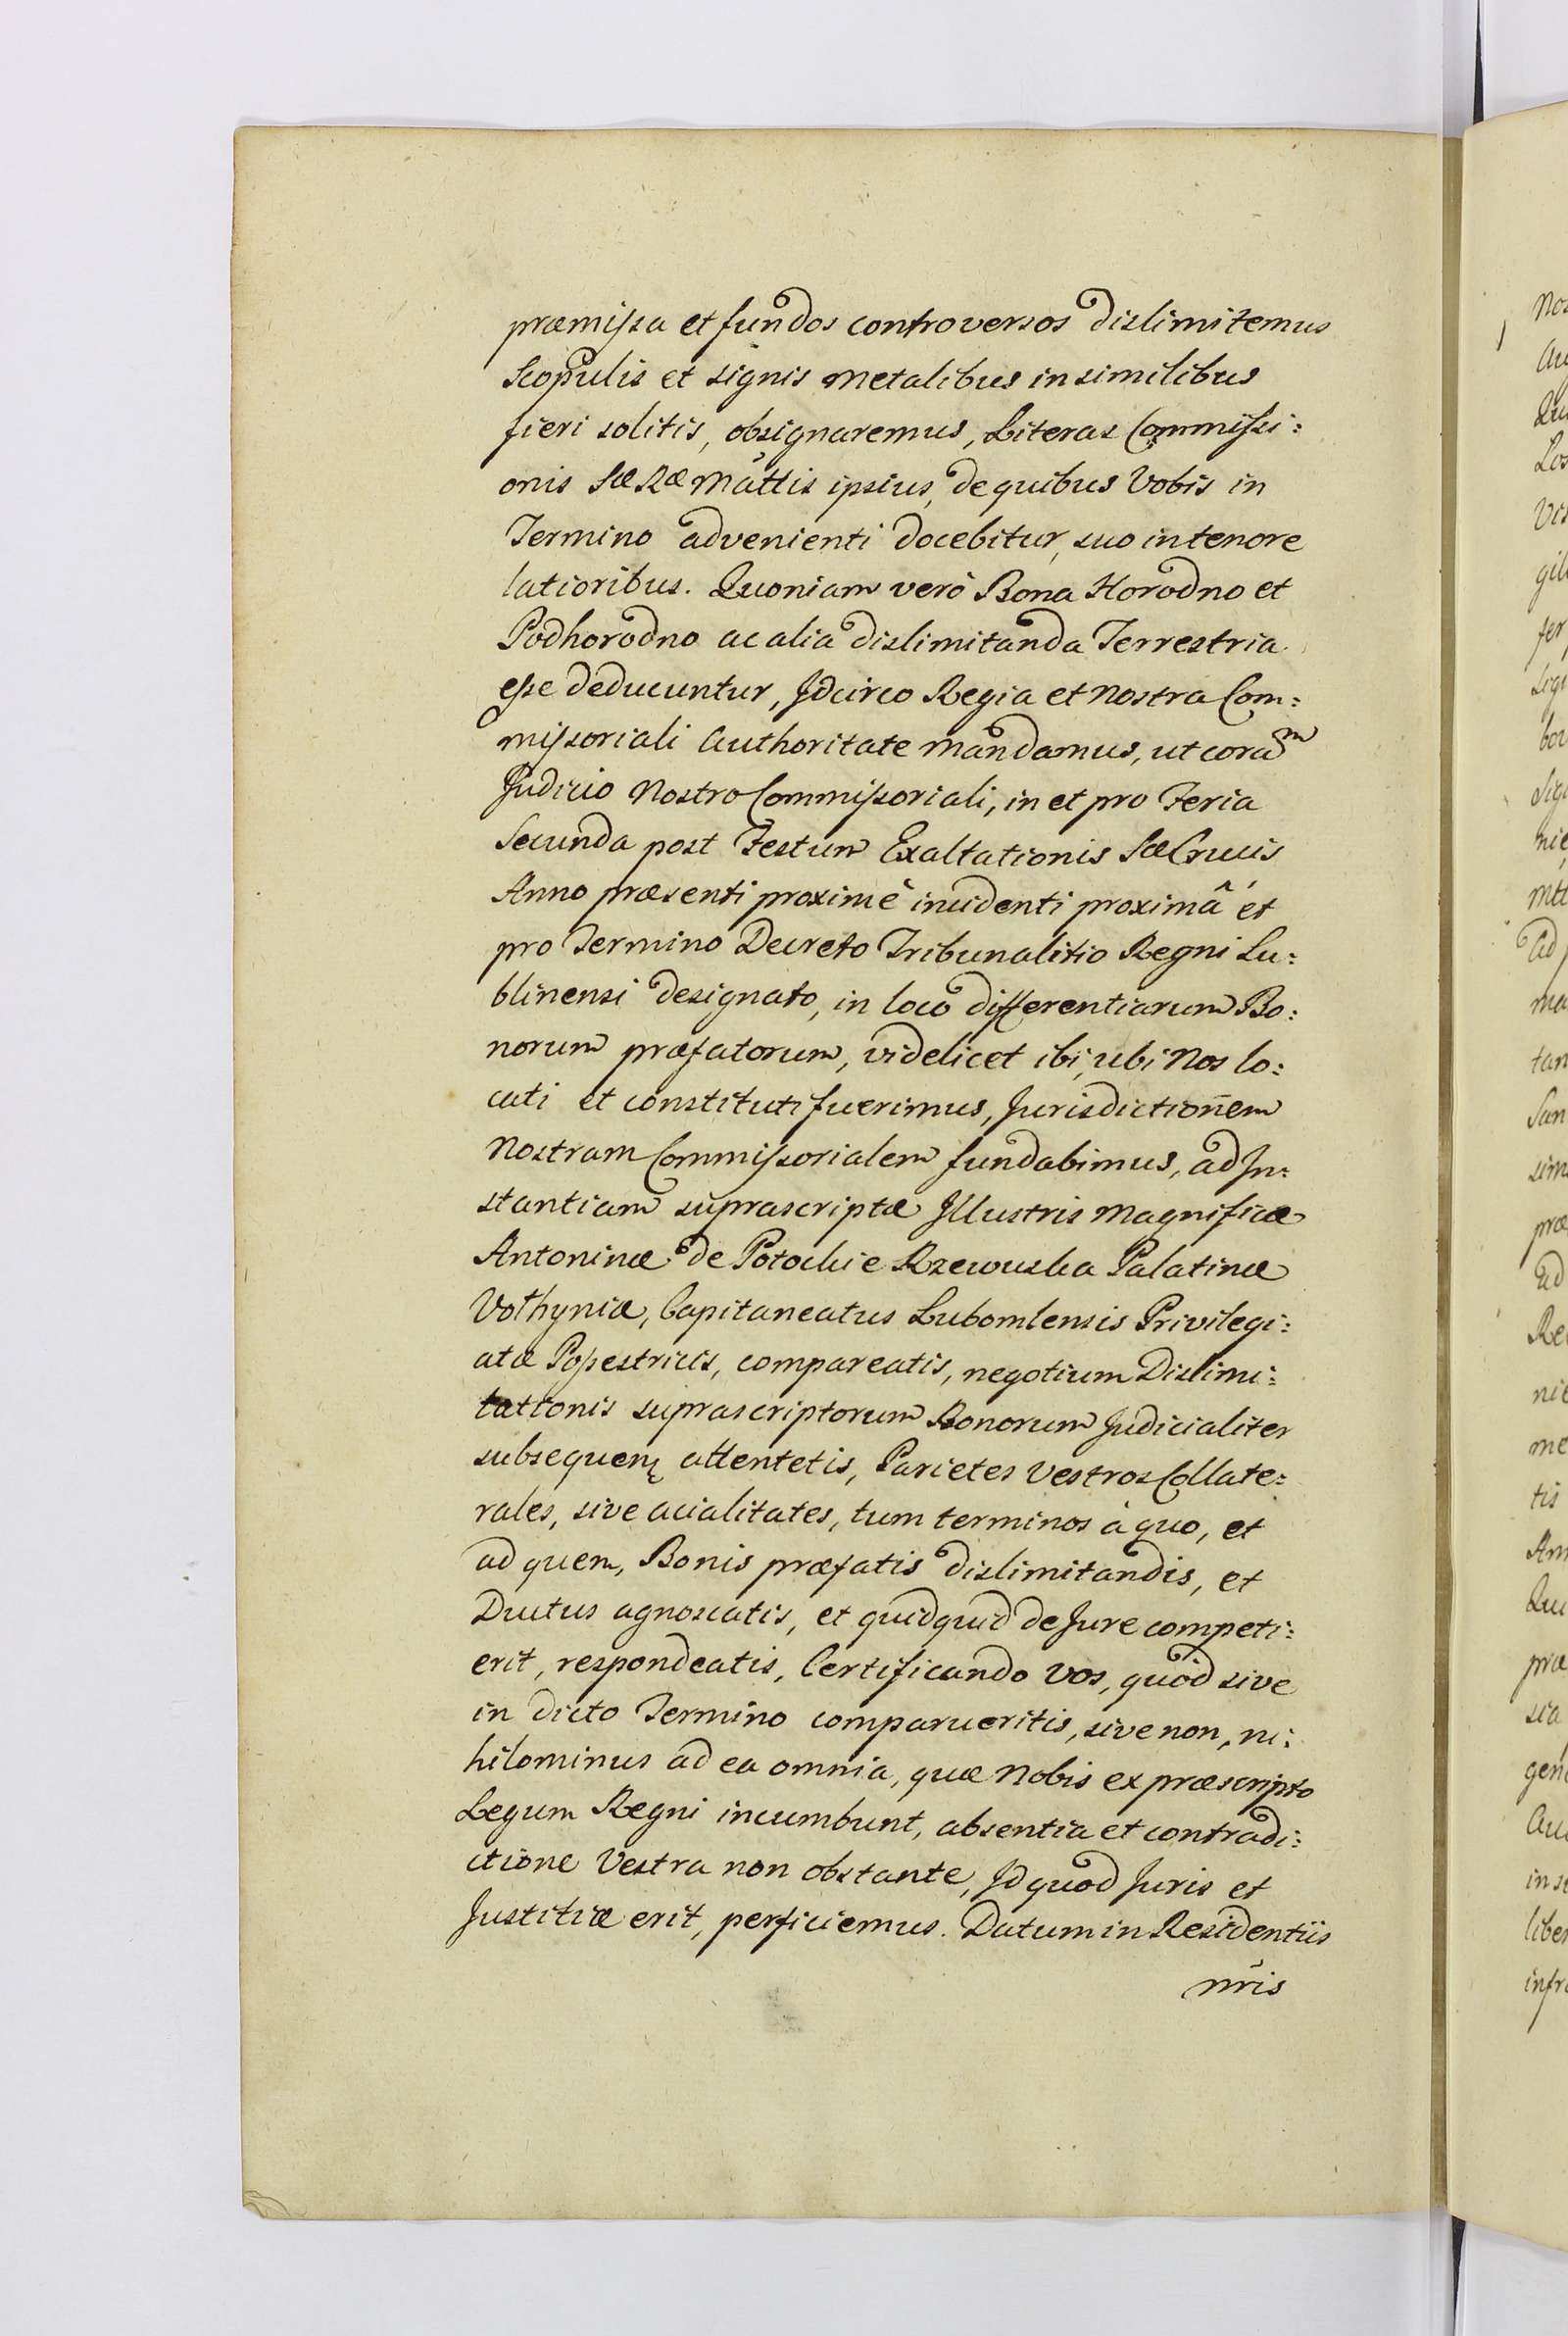 præmissa et fundos controversos dislimitemus
Scopulis et signis metalibus in similibus
fieri solitis, obsignaremus, Literas Commissi:
onis Sæ Ræ Mattis ipsius, de quibus Vobis in
Termino advenienti docebitur, suo in tenore
latioribus. Quoniam verò Bona Horodno et
Podhorodno ac alia dislimitanda Terrestria
esse deducuntur, Idcirco Regia et nostra Com:
missoriali Authoritate mandamus, ut coram
Judicio Nostro Commissoriali, in et pro Feria
Secunda post Festum Exaltationis Sæ Crucis
Anno præsenti proximè incidenti proximâ et
pro Termino Decreto Tribunalitio Regni Lu:
blinensi designato, in loco differentiarum Bo:
norum præfatorum, videlicet ibi, ubi Nos lo:
cati et constituti fuerimus, Jurisdictionem
Nostram Commissorialem fundabimus, ad In:
stantiam suprascriptæ Illustris Magnificæ
Antoninæ de Potockie Rzewuska Palatinæ
Volhyniæ, Capitaneatus Lubomlensis Privilegi:
atæ Possestricis, compareatis, negotium Dislimi:
tationis suprascriptorum Bonorum Judicialiter
subsequenz attentetis, Parietes Vestros Collate:
rales, sive acialitates, tum terminos à quo, et
ad quem, Bonis præfatis dislimitandis, et
Ductus agnoscatis, et quidquid de Jure competi:
erit, respondeatis, Certificando Vos, quòd sive
in dicto Termino comparueritis, sive non, ni:
hilominus ad ea omnia, quæ Nobis ex præscripto
Legum Regni incumbunt, absentia et contradi:
ctione Vestra non obstante, Id quod Juris et
Justitiæ erit, perficiemus. Datum in Residentiis
nris